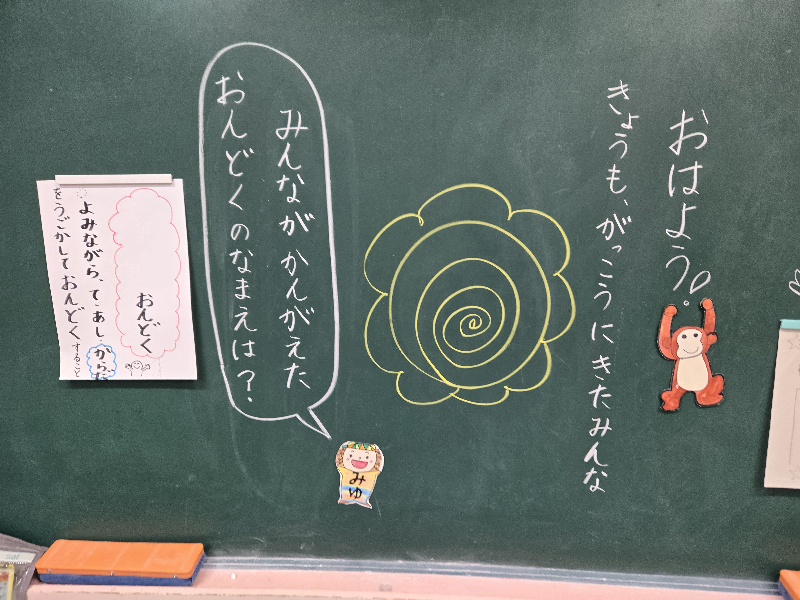 おはよう。
きょうも、がっこうにきたみんな
みんながかんがえた
おんどくのなまえは?
みゆ
おんどく
よみながら、て・あし からだ
をうごかしておんどくすること